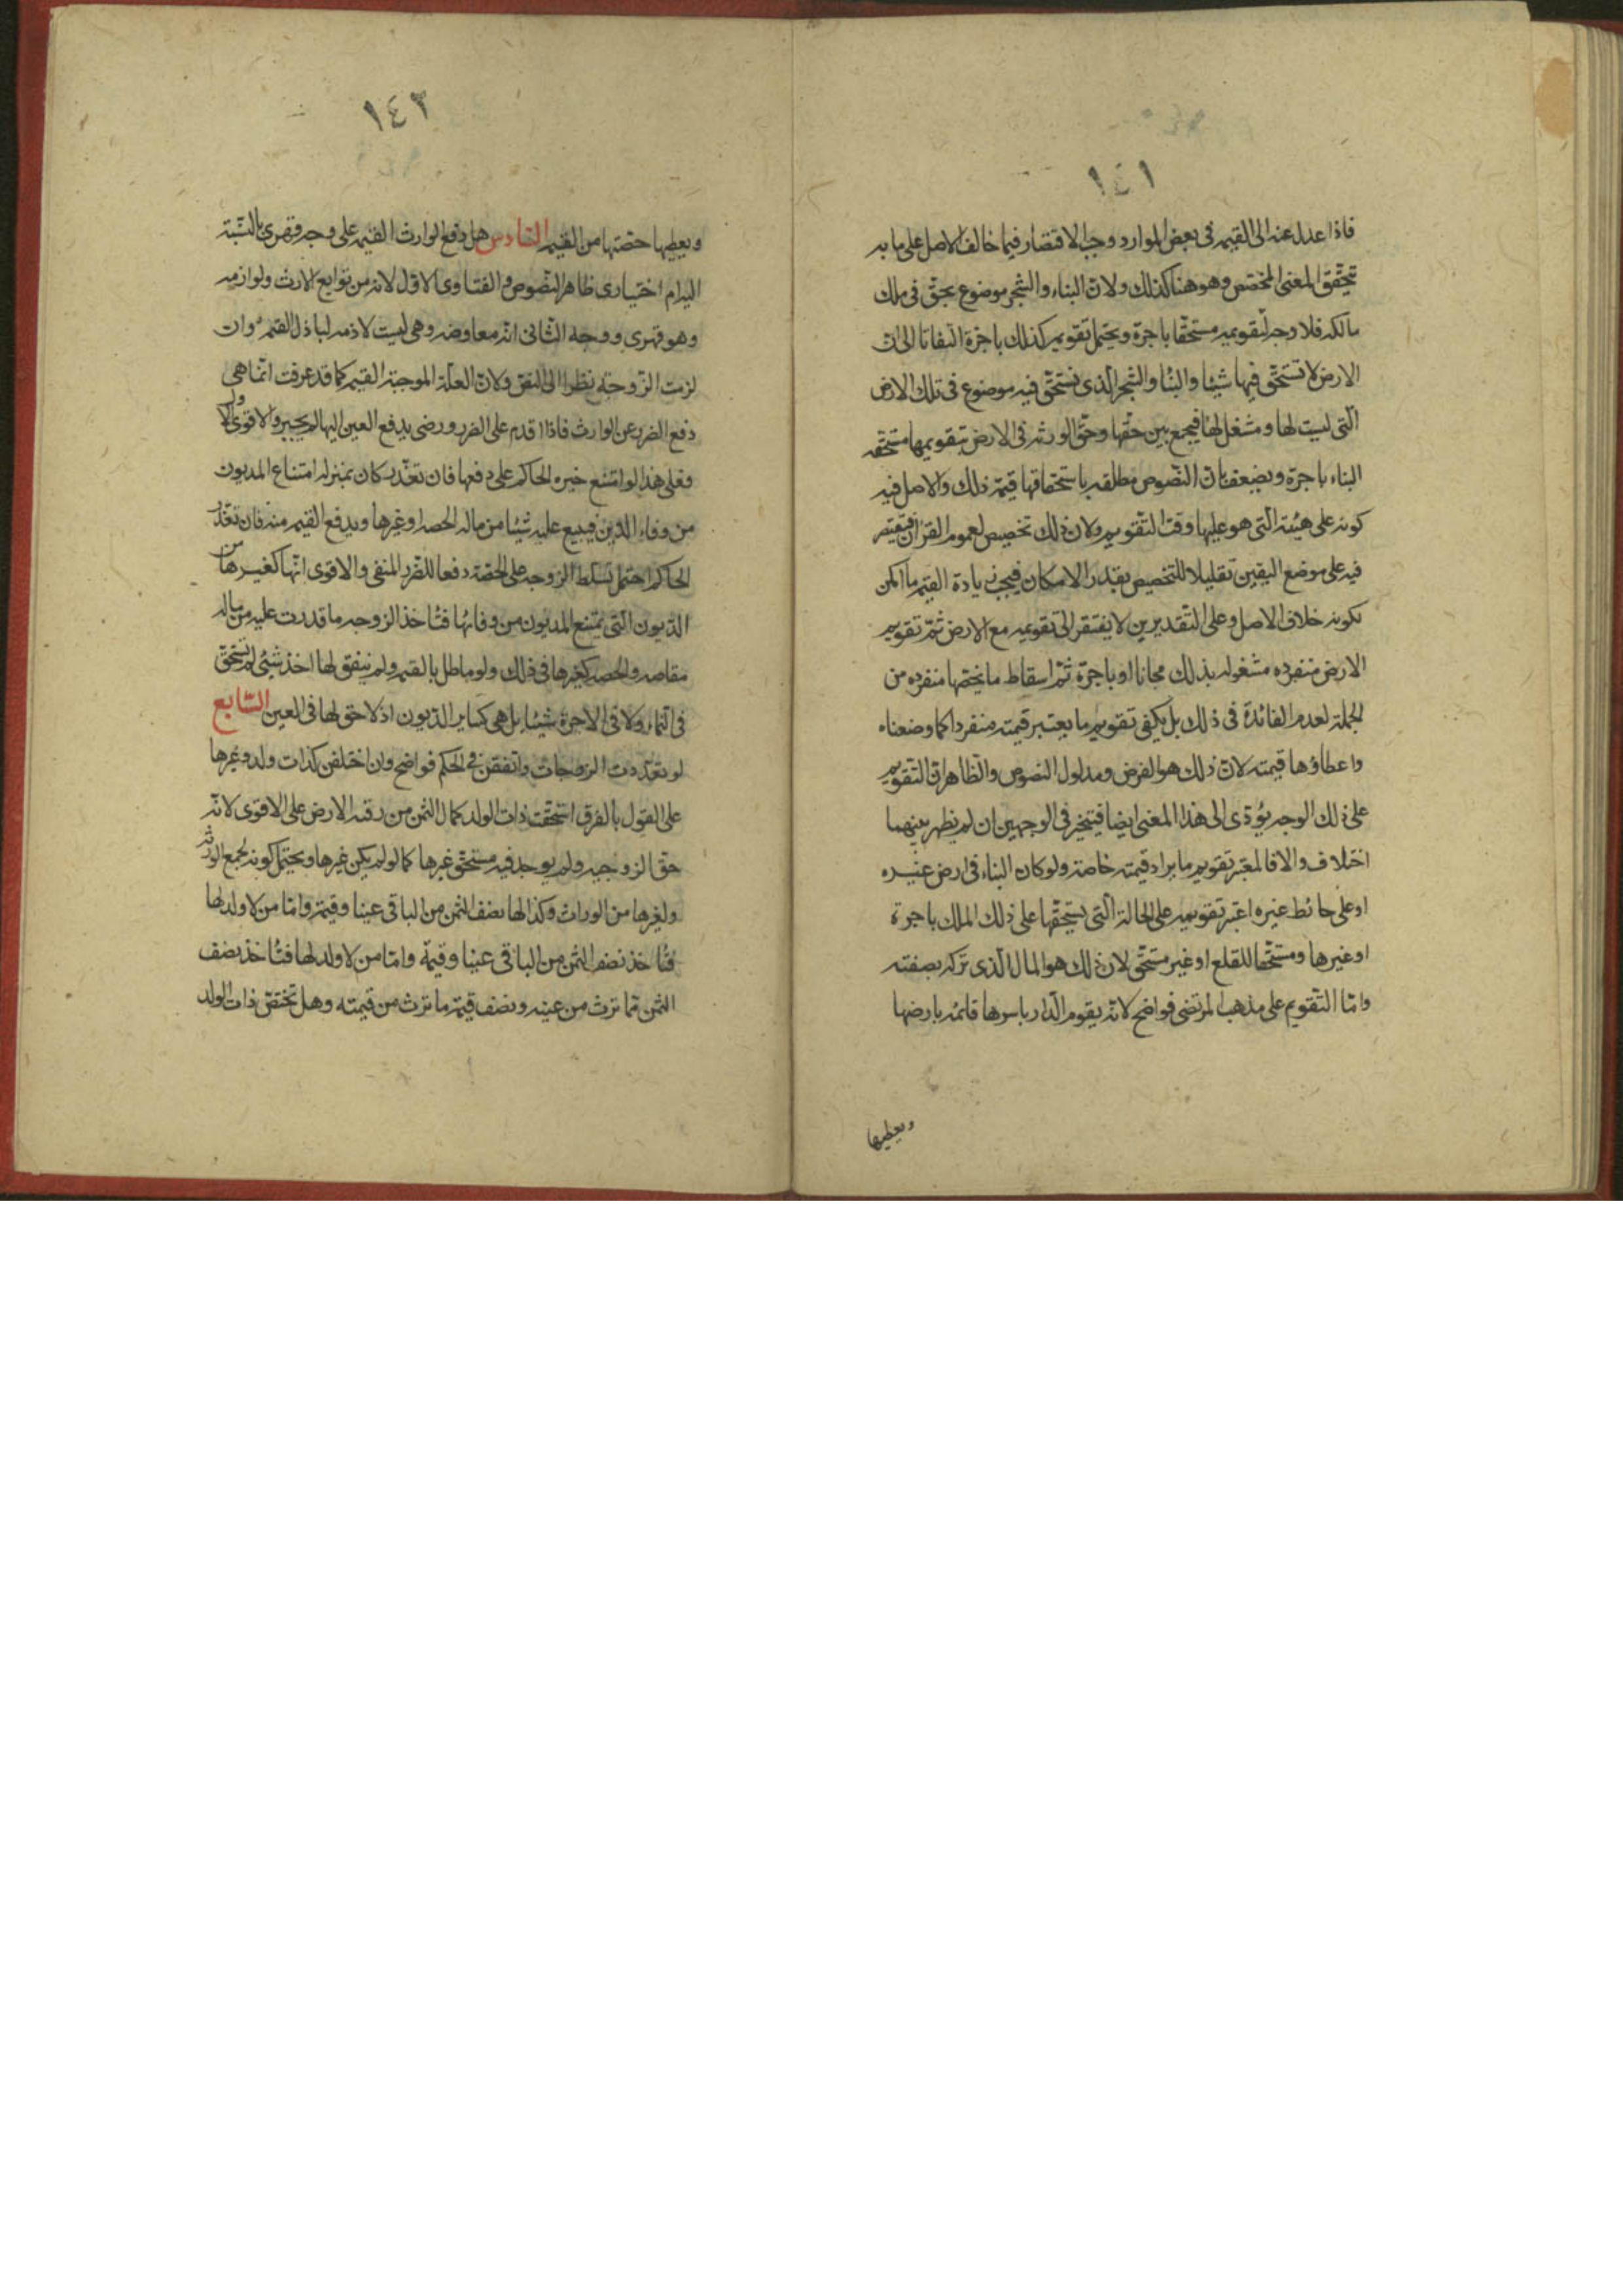 ١٤١
فاذا عدل عنه الى القيمه فى بعض الموارد وجب الاقتصار فيما خالف الاصل على ما به
يتحقق المعنى المختص وهو هنا كذلك ولان البناء والشجر موضوع بحق فى ملك
مالكه فلا وجه لتقويمه مستحقا باجرة ويحتمل تقويمه كذلك باجرة التفاتا الى ان
الارض لا تستحق فيها شيئا والبنا والشجر الذى تستحق فيه موضوع فى تلك الارض
التى ليست لها ومشغل لها فيجمع بين حقها وحق الورثه فى الارض بتقويمها مستحقه
البناء باجرة ويضعف بان النصوص مطلقه باستحقاقها قيمة ذلك والاصل فيه
كونه على هيئته التى هو عليها وقت التقويم ولان ذلك تخصيص لعموم القران فيقتصر
فيه على موضع اليقين تقليلا للتخصيص بقدر الامكان فيجب زيادة القيمه ما امكن
لكونه خلاف الاصل وعلى التقديرين لا يفتقر الى تقويمه مع الارض ثم تقويم
الارض منفرده مشغوله بذلك مجانا او باجرة ثم اسقاط ما يخصها منفرده من
الجملة لعدم الفائدة فى ذلك بل يكفى تقويم ما يعتبر قيمته منفردا كما وصفناه
واعطاؤها قيمته لان ذلك هو الفرض ومدلول النصوص والظاهر ان التقويم
على ذلك الوجه يؤدى الى هذا المعنى ايضا فيتخير فى الوجهين ان لم يظهر بينهما
اختلاف والا فالمعتبر تقويم ما يراد قيمته خاصة ولو كان البناء فى ارض غيره
او على حائط غيره اعتبر تقويمه على الحالة التى يستحقها على ذلك الملك باجرة
او غيرها ومستحقا للقلع او غير مستحق لان ذلك هو المال الذى تركه بصفته
واما التقويم على مذهب المرتضى فواضح لانه يقوم الدار باسرها قائمه بارضها
ويعطيها
١٤٢
ويعطيها حصتها من القيمه السادس هل دفع الوارث القيمه على وجه قهرى بالنسبة
اليه ام اختيارى ظاهر النصوص والفتاوى الاول لانه من توابع الارث ولوازمه
وهو قهرى ووجه الثانى انه معاوضه وهى ليست لازمه لباذل القيمه وان
لزمت الزوجة نظرا الى النص ولان العلة الموجبة القيمه كما قد عرفت انما هى
دفع الضرر عن الوارث فاذا اقدم على الضرر ورضى بدفع العين اليها لم يجبر والاقوى الاول
فعلى هذا لو امتنع خيره الحاكم على دفعها فان تعذر كان بمنزله امتناع المديون
من وفاء الدين فيبيع عليه شيئا من ماله الحصه او غيرها ويدفع القيمه منه فان تعذر
الحاكم احتمل تسلط الزوجه على الحصة دفعا للضرر المنفى والاقوى انها كغيرها من
الديون التى يمتنع المديون من وفائها فتاخذ الزوجه ما قدرت عليه من ماله
مقاصه والحصه كغيرها فى ذلك ولو ماطل بالقيمه ولم يتفق لها اخذ شئ لم تستحق
فى النماء ولا فى الاجرة شيئا بل هى كساير الديون اذ لا حق لها فى العين السابع
لو تعددت الزوجات واتفقن فى الحكم فواضح وان اختلفن كذات ولد وغيرها
على القول بالفرق استحقت ذات الولد كمال الثمن من رقبه الارض على الاقوى لانه
حق الزوجيه ولم يوجد فيه مستحق غيرها كما لو لم يكن غيرها ويحتمل كونه لجمع الورثه
ولغيرها من الوراث وكذا لها نصف الثمن من الباقى عينا وقيمة واما من لا ولد لها
فتاخذ نصف الثمن من الباقى عينا وقيمة واما من لا ولد لها فتاخذ نصف
الثمن مما ترث من عينه ونصف قيمة ما ترث من قيمته وهل تختص ذات الولد